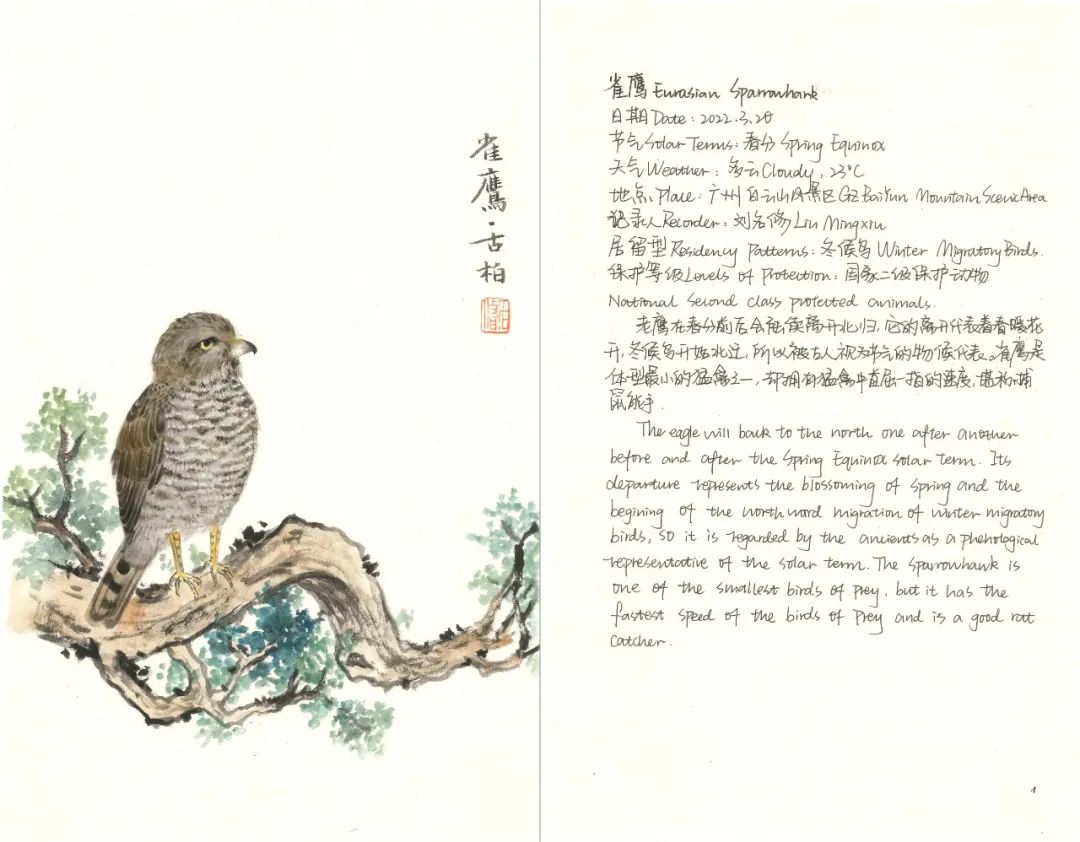 雀鷹·古柏
雀鹰 Eurasian Sparrowhawk
日期 Date: 2022.3.20
节气 Solar Terms: 春分 Spring Equinox
天气 Weather: 多云 Cloudy, 23°C
地点 Place: 广州白云山风景区 GZ Baiyun Mountain Scenic Area
记录人 Recorder: 刘名修 Liu Mingxiu
居留型 Residency Patterns: 冬候鸟 Winter Migratory Birds.
保护等级 Levels of Protection: 国家二级保护动物
National second class protected animals.
老鹰在春分前后会陆续离开北归,它的离开代表着春暖花
开,冬候鸟开始北迁,所以被古人视为节气的物候代表。雀鹰是
体型最小的猛禽之一,却拥有猛禽中首屈一指的速度,堪称捕
鼠能手.
The eagle will back to the north one after another
before and after the Spring Equinox solar term. Its
departure represents the blossoming of spring and the
begining of the northward migration of winter migratory
birds, so it is regarded by the ancients as a phenological
representative of the solar term. The sparrowhawk is
one of the smallest birds of prey, but it has the
fastest speed of the birds of prey and is a good rat
catcher.
1